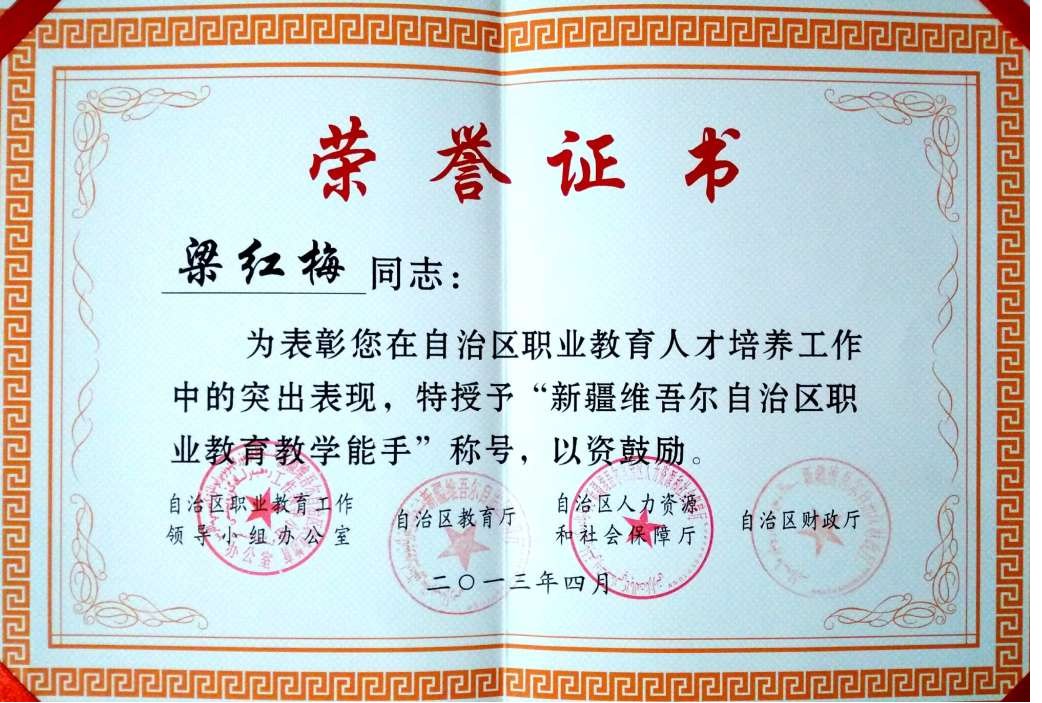 荣誉证书
梁红梅同志：
为表彰您在自治区职业教育人才培养工作
中的突出表现，特授予“新疆维吾尔自治区职
业教育教学能手”称号，以资鼓励。
自治区职业教育工作
领导小组办公室
自治区教育厅
自治区人力资源
和社会保障厅
自治区财政厅
二〇一三年四月